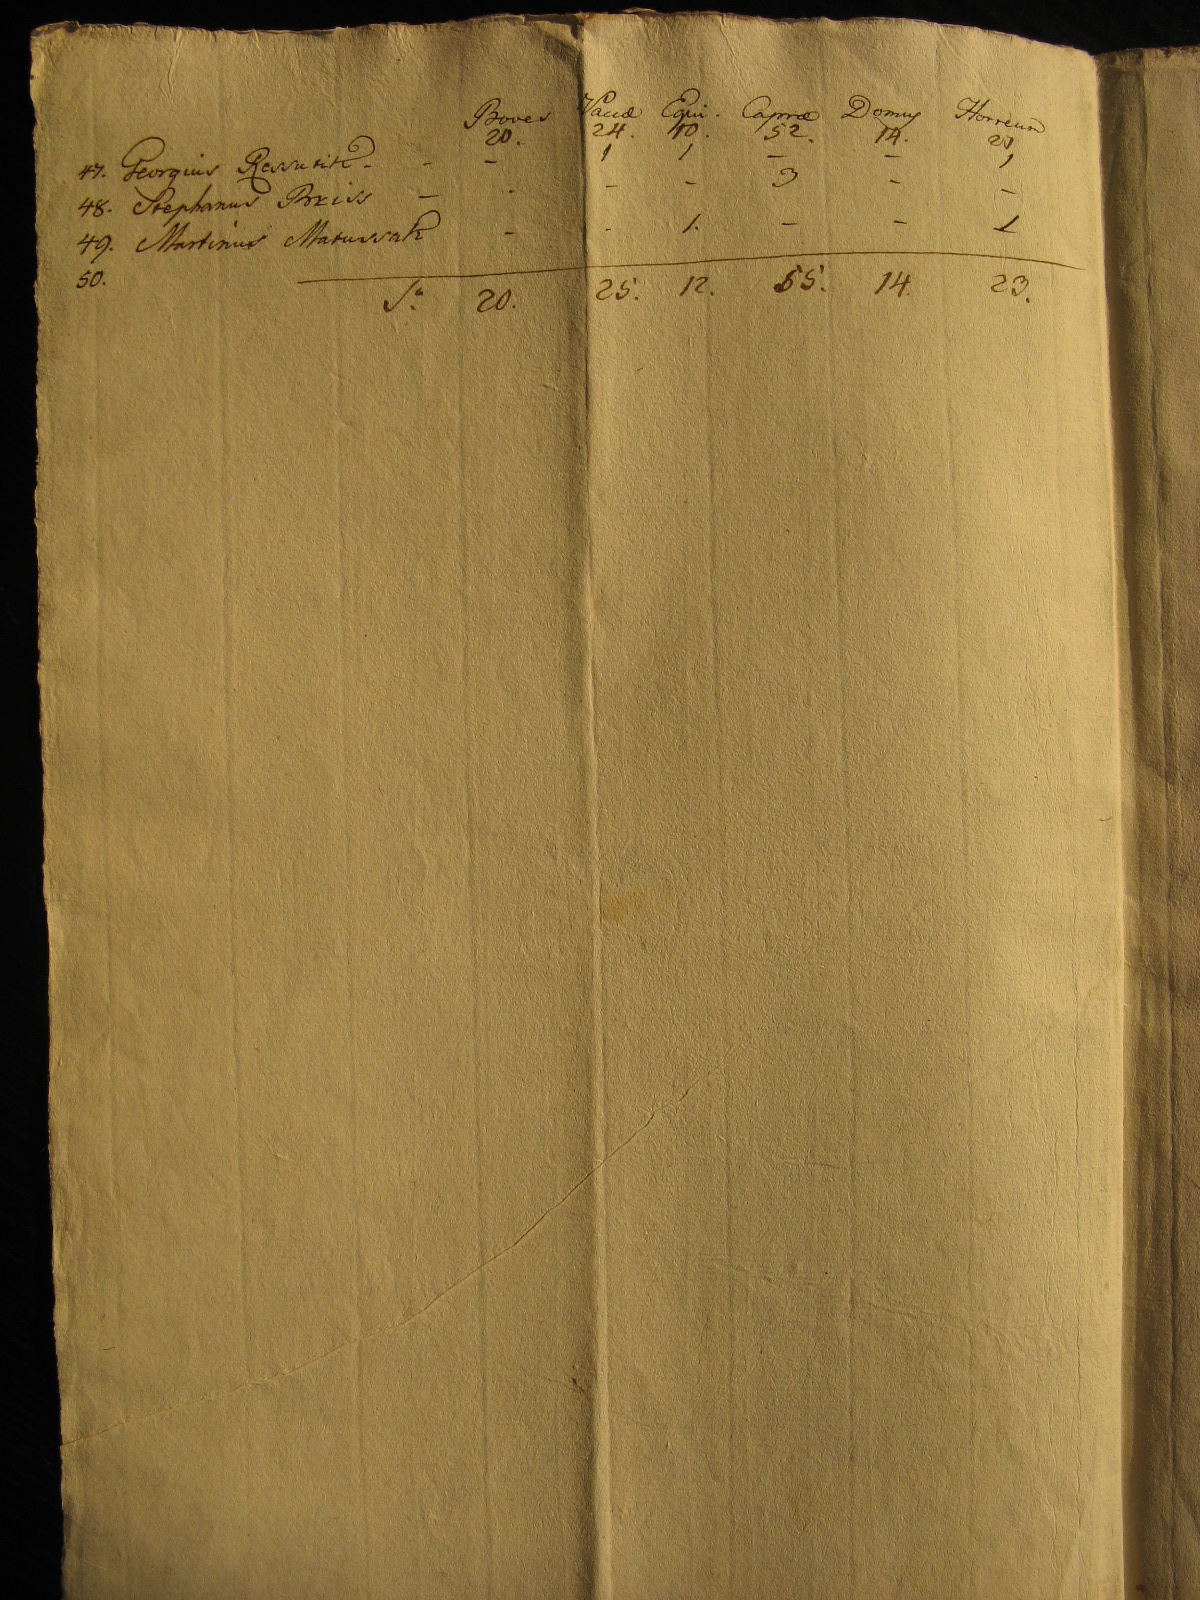 Boves Vaccæ Equi. Capræ Domus Horreum
20. 24. 10. 52. 14. 21
47. Georgius - - 1 1 - - 1
48. Stephanus - - - - 3 - -
49. Martinus Matussak - - 1. - - 1
50.
Sa. 20. 25. 12. 55. 14. 23.